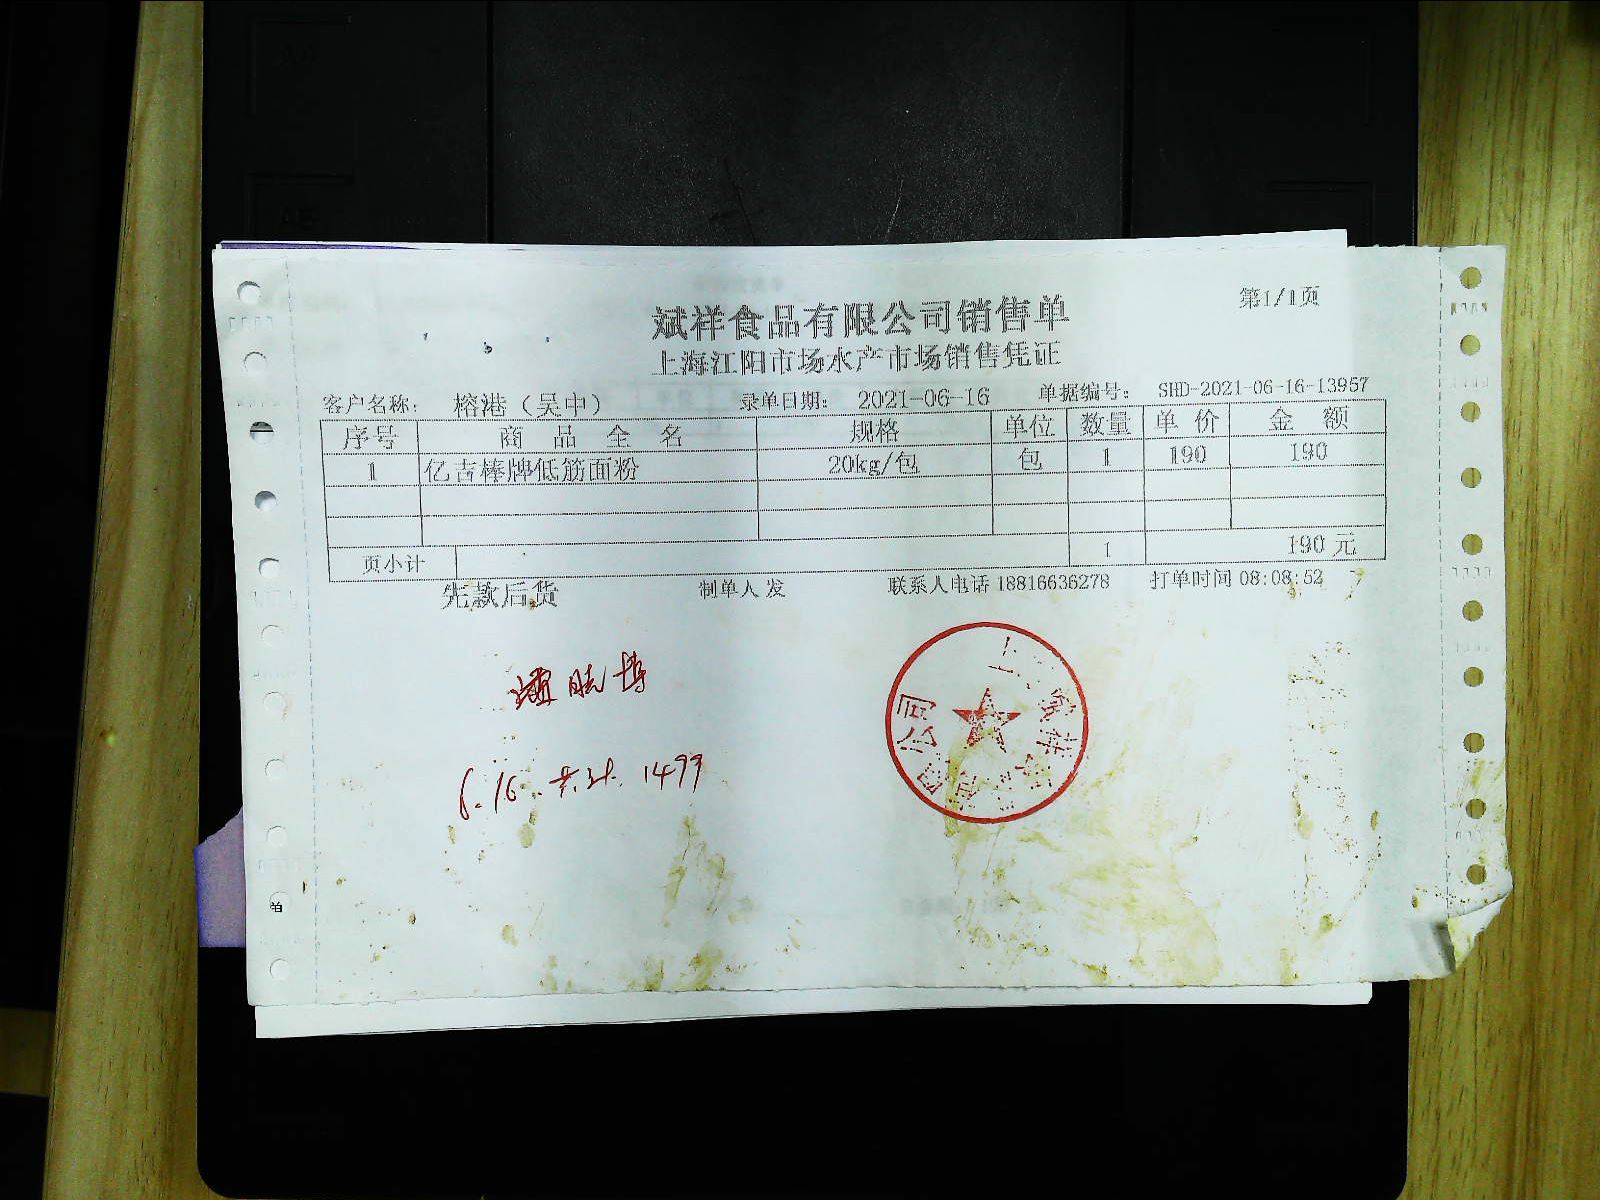 第1/1页
斌祥食品有限公司销售单
上海江阳市场水产市场销售凭证
客户名称： 榕港（吴中） 录单日期： 2021-06-16 单据编号： SHD-2021-06-16-13957
序号 商品全名 规格 单位 数量 单价 金额
1 亿古棒牌低筋面粉 20kg/包 包 1 190 190
页小计 1 190元
先款后货 制单人 发 联系人电话 18816636278 打单时间 08:08:52
6.16.共计.1499